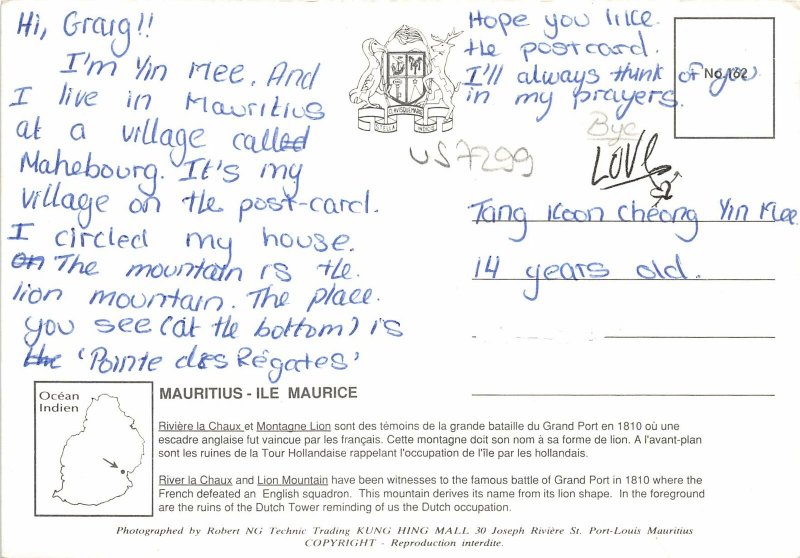 Hi, Graig!!
I'm Yin Mee. And
I live in Mauritius
at a village called
Mahebourg. It's my
village on the post-card.
I circled my house.
On The mountain is the
lion mountain. The place
you see (at the bottom) is
the 'Pointe des Régates'
Hope you like
the postcard.
I'll always think of you
in my prayers.
No. 162
Bye
LOVE
US7299
STELLA
INDICI
Tang Koon Cheong Yin Mee
14 years old.
Océan
Indien
MAURITIUS - ILE MAURICE
Rivière la Chaux et Montagne Lion sont des témoins de la grande bataille du Grand Port en 1810 où une
escadre anglaise fut vaincue par les français. Cette montagne doit son nom à sa forme de lion. A l'avant-plan
sont les ruines de la Tour Hollandaise rappelant l'occupation de l'île par les hollandais.
River la Chaux and Lion Mountain have been witnesses to the famous battle of Grand Port in 1810 where the
French defeated an English squadron. This mountain derives its name from its lion shape. In the foreground
are the ruins of the Dutch Tower reminding of us the Dutch occupation.
Photographed by Robert NG Technic Trading KUNG HING MALL 30 Joseph Rivière St. Port-Louis Mauritius
COPYRIGHT - Reproduction interdite.